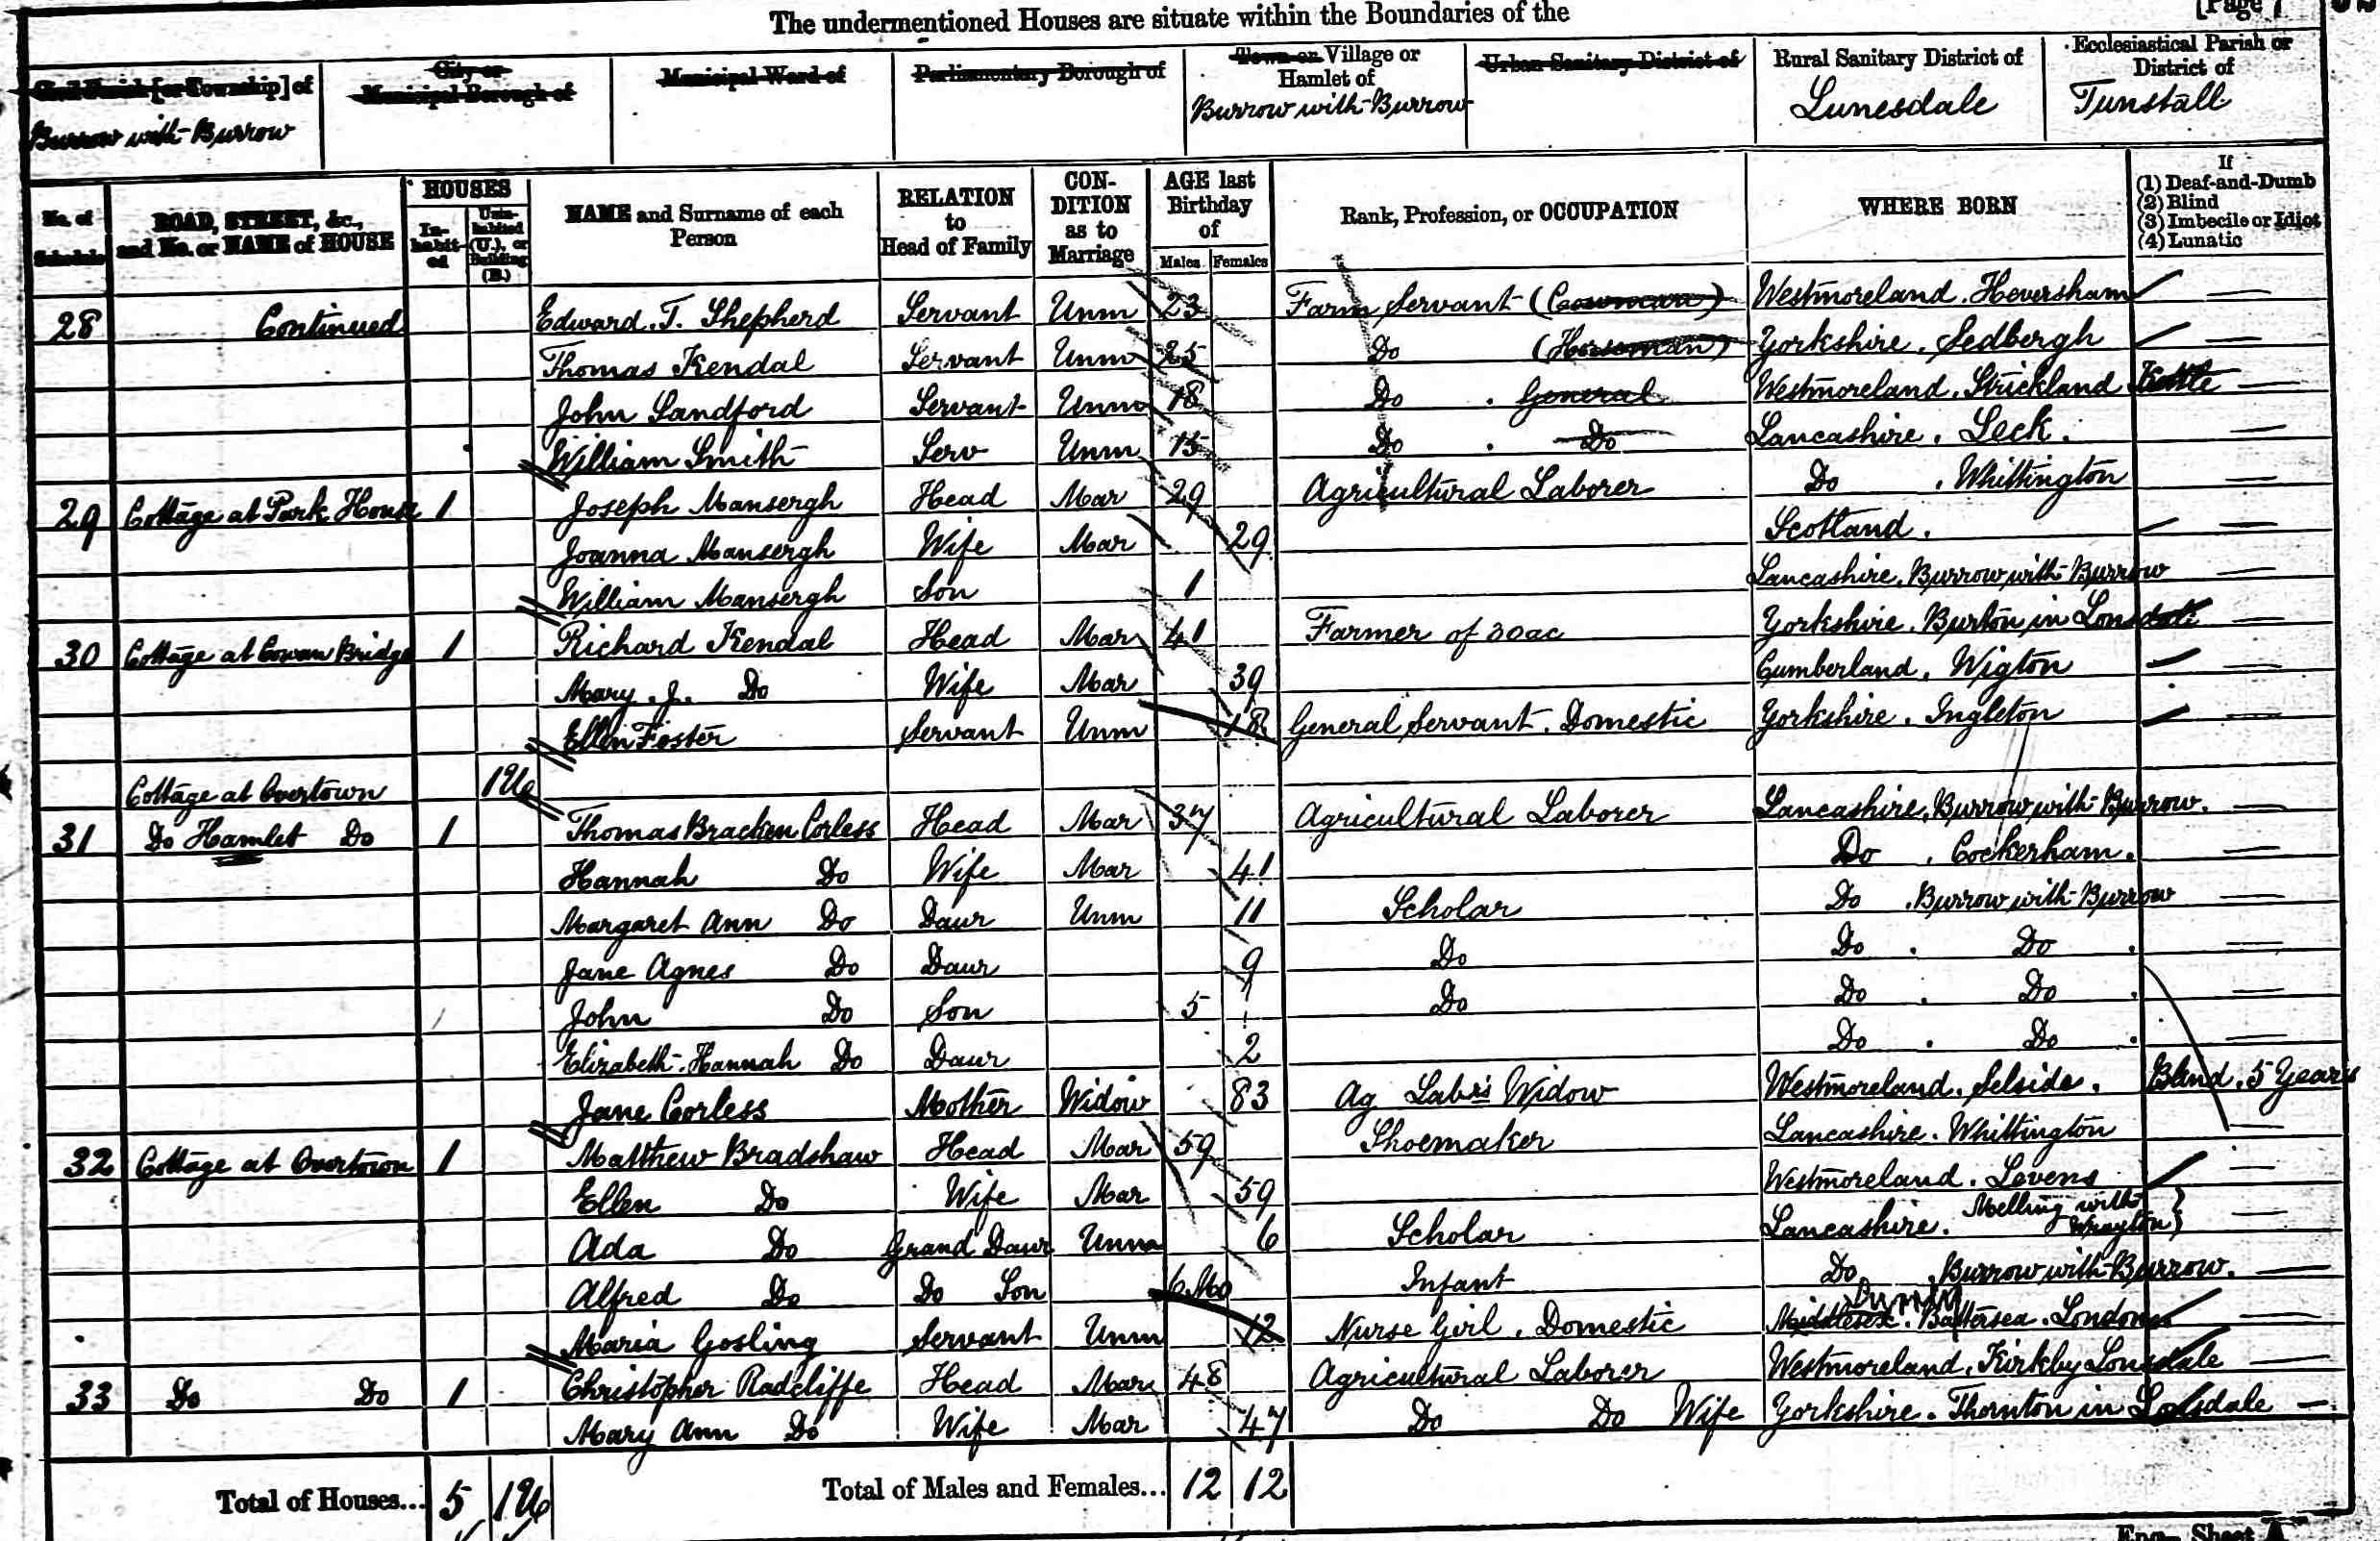 The undermentioned Houses are situate within the Boundaries of the [Page 7
Civil Parish [or Township] of City or Municipal Borough of Municipal Ward of Parliamentary Borough of Town or Village or Hamlet of Urban Sanitary District of Rural Sanitary District of Ecclesiastical Parish or District of
Burrow with Burrow Burrow with Burrow Lunesdale Tunstall
No. of Schedule ROAD, STREET, &c., and No. or NAME of HOUSE HOUSES Inhabited Uninhabited (U.), or Building (B.) NAME and Surname of each Person RELATION to Head of Family CONDITION as to Marriage AGE last Birthday of Males Females Rank, Profession, or OCCUPATION WHERE BORN If (1) Deaf-and-Dumb (2) Blind (3) Imbecile or Idiot (4) Lunatic
28 Continued Edward. T. Shepherd Servant Unm 23 Farm Servant (Cowman) Westmoreland. Heversham —
Thomas Kendal Servant Unm 25 Do (Horseman) Yorkshire. Sedbergh —
John Sandford Servant Unm 18 Do . General Westmoreland. Strickland Kettle —
William Smith Serv Unm 15 Do . Do Lancashire. Leck. —
29 Cottage at Park House 1 Joseph Mansergh Head Mar 29 Agricultural Laborer Do . Whittington —
Joanna Mansergh Wife Mar 29 Scotland. —
William Mansergh Son 1 Lancashire. Burrow with Burrow —
30 Cottage at Cowan Bridge 1 Richard Kendal Head Mar 41 Farmer of 30ac Yorkshire. Burton in Lonsdale
Mary. J. Do Wife Mar 39 Cumberland. Wigton —
Ellen Foster Servant Unm 18 General Servant. Domestic Yorkshire. Ingleton —
Cottage at Overtown 1U
31 Do Hamlet Do 1 Thomas Bracken Corless Head Mar 37 Agricultural Laborer Lancashire. Burrow with Burrow. —
Hannah Do Wife Mar 41 Do . Cockerham. —
Margaret Ann Do Daur Unm 11 Scholar Do . Burrow with Burrow —
Jane Agnes Do Daur 9 Do Do . Do . —
John Do Son 5 Do Do . Do . —
Elizabeth Hannah Do Daur 2 Do . Do . —
Jane Corless Mother Widow 83 Ag Labr's Widow Westmoreland. Selside. Blind. 5 Years
32 Cottage at Overtown 1 Matthew Bradshaw Head Mar 59 Shoemaker Lancashire. Whittington —
Ellen Do Wife Mar 59 Westmoreland. Levens —
Ada Do Grand Daur Unm 6 Scholar Lancashire. Melling with Wrayton} —
Alfred Do Do Son 6 Mo Infant Do . Burrow with Burrow. —
Maria Gosling Servant Unm 12 Nurse Girl. Domestic Middlesex. Surrey Battersea. London
33 Do Do 1 Christopher Radcliffe Head Mar 48 Agricultural Laborer Westmoreland. Kirkby Lonsdale —
Mary Ann Do Wife Mar 47 Do Do Wife Yorkshire. Thornton in Lonsdale —
Total of Houses... 5 1U Total of Males and Females... 12 12
Eng— Sheet A